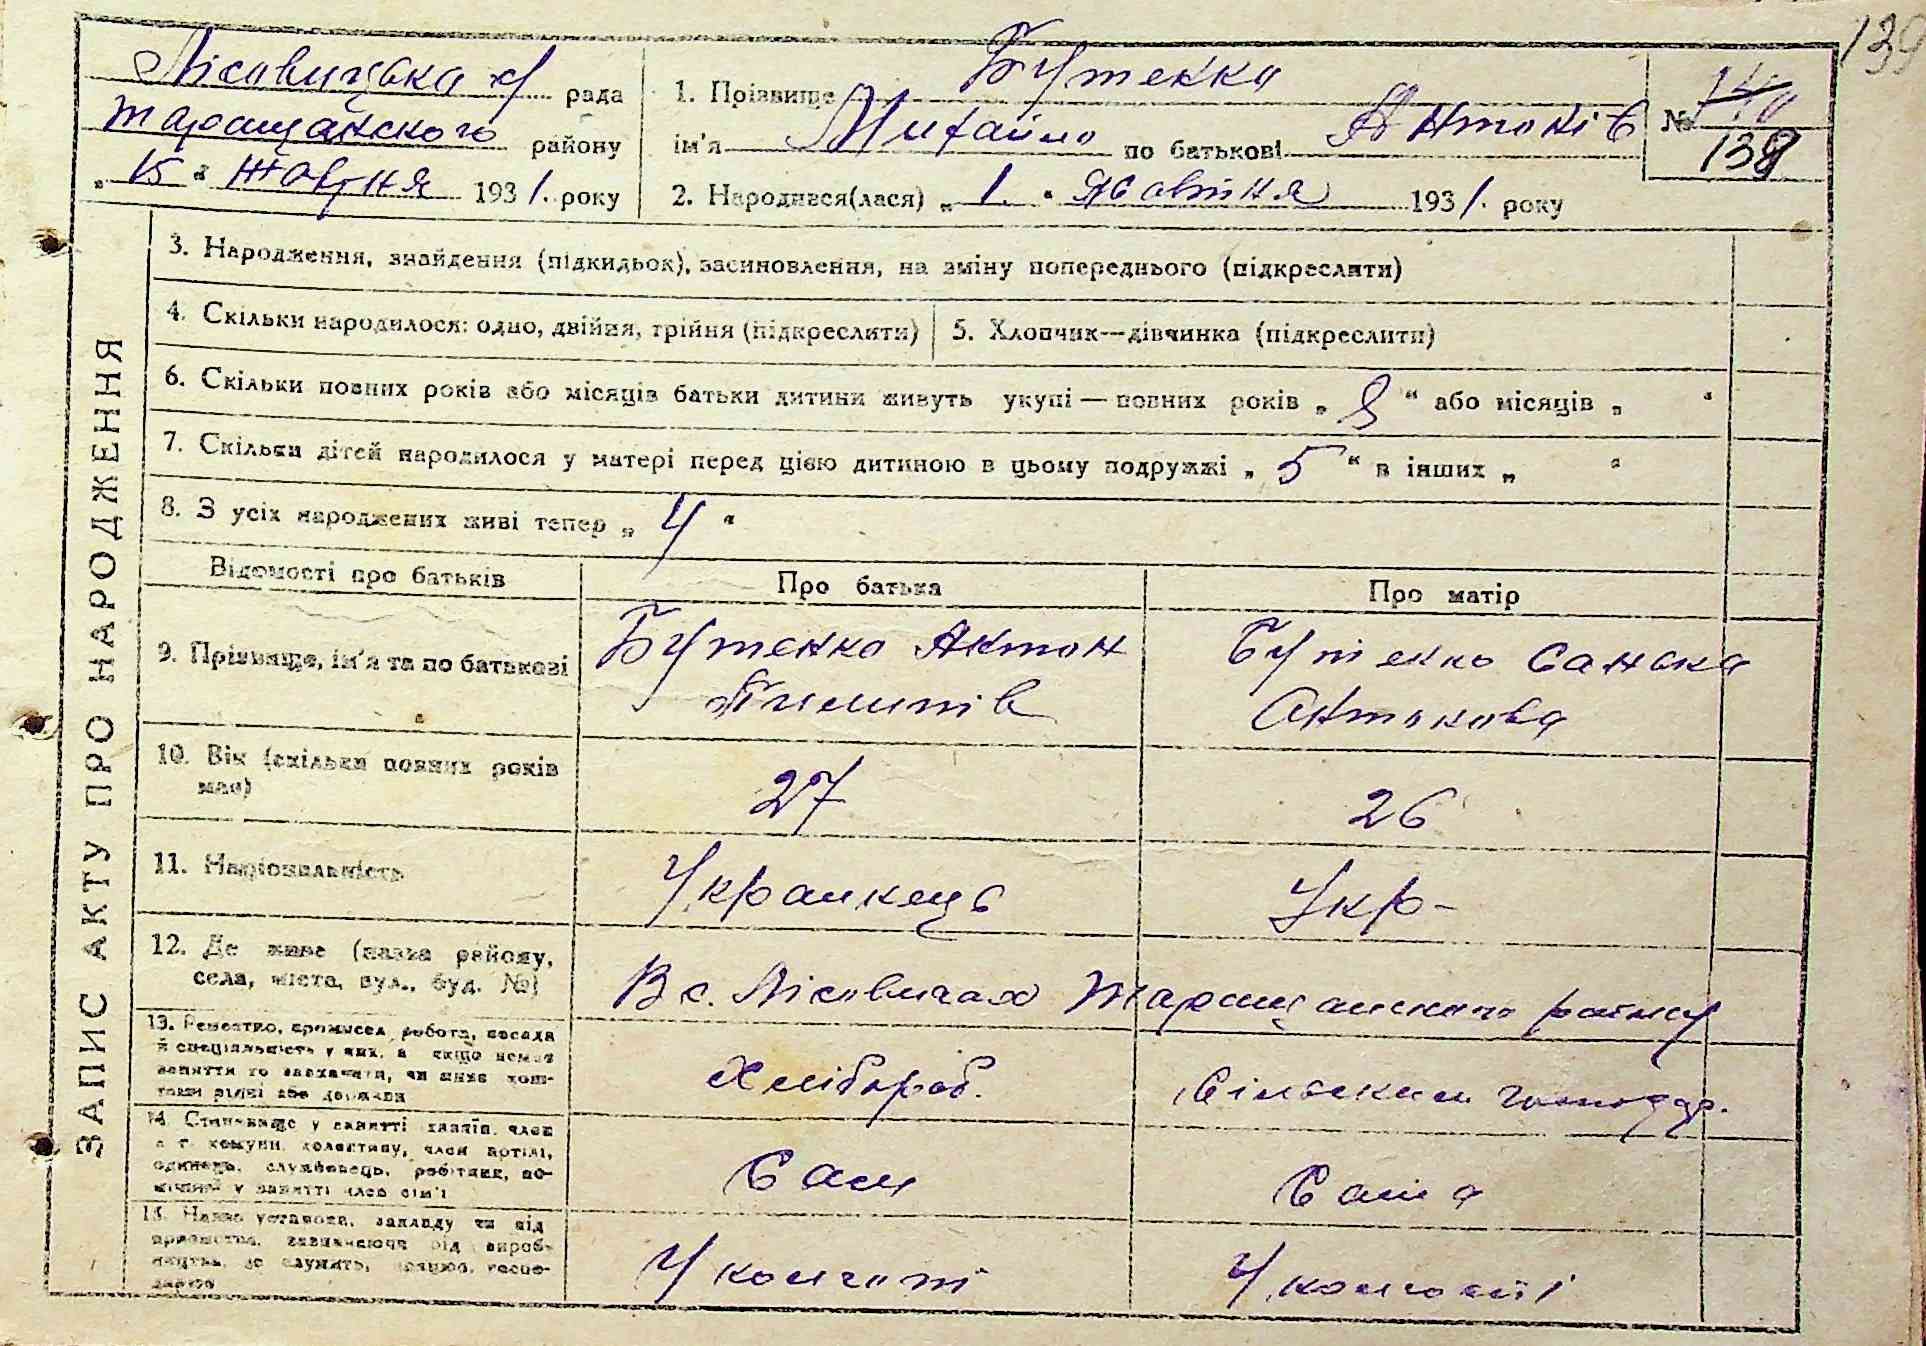 139
Лісовицька с/ рада
Таращанського району
„ 15 “ Жовтня 1931. року
1. Прізвище Бутенко
ім'я Михайло по батькові Антонів
2. Народився(лася) „ 1. “ жовтня 1931. року
№ 138
ЗАПИС АКТУ ПРО НАРОДЖЕННЯ
3. Народження, знайдення (підкидьок), засиновлення, на зміну попереднього (підкреслити)
4. Скільки народилося: одно, двійня, трійня (підкреслити)
5. Хлопчик—дівчинка (підкреслити)
6. Скільки повних років або місяців батьки дитини живуть укупі — повних років „ 8 “ або місяців „ “
7. Скільки дітей народилося у матері перед цією дитиною в цьому подружжі „ 5 “ в інших „ “
8. З усіх народжених живі тепер „ 4 “
Відомості про батьків
Про батька
Про матір
9. Прізвище, ім'я та по батькові
Бутенко Антон
Пилипів
Бутенко
Антонова
10. Вік (скільки повних років
має)
27
26
11. Національність
Украинець
Укр-
12. Де живе (назва району,
села, міста, вул., буд. №)
В с. Лісовичах Таращанського району
13. Ремество, промисел, робота, посада
й спеціяльність у них, а якщо немає
заняття то зазначити, чи живе кош-
тами рідні або держави
Хлібороб.
Сільським господар.
14. Становище у занятті хазяїн, член
с. г. комуни, колективу, член артілі,
одинець, службовець, робітник, по-
мічний у занятті член сім'ї
Сам
Сама
15. Назва установи, закладу чи під
приємства, зазначаючи рід вироб-
ництва, де служить, працює,
У колгоспі
У колгоспі